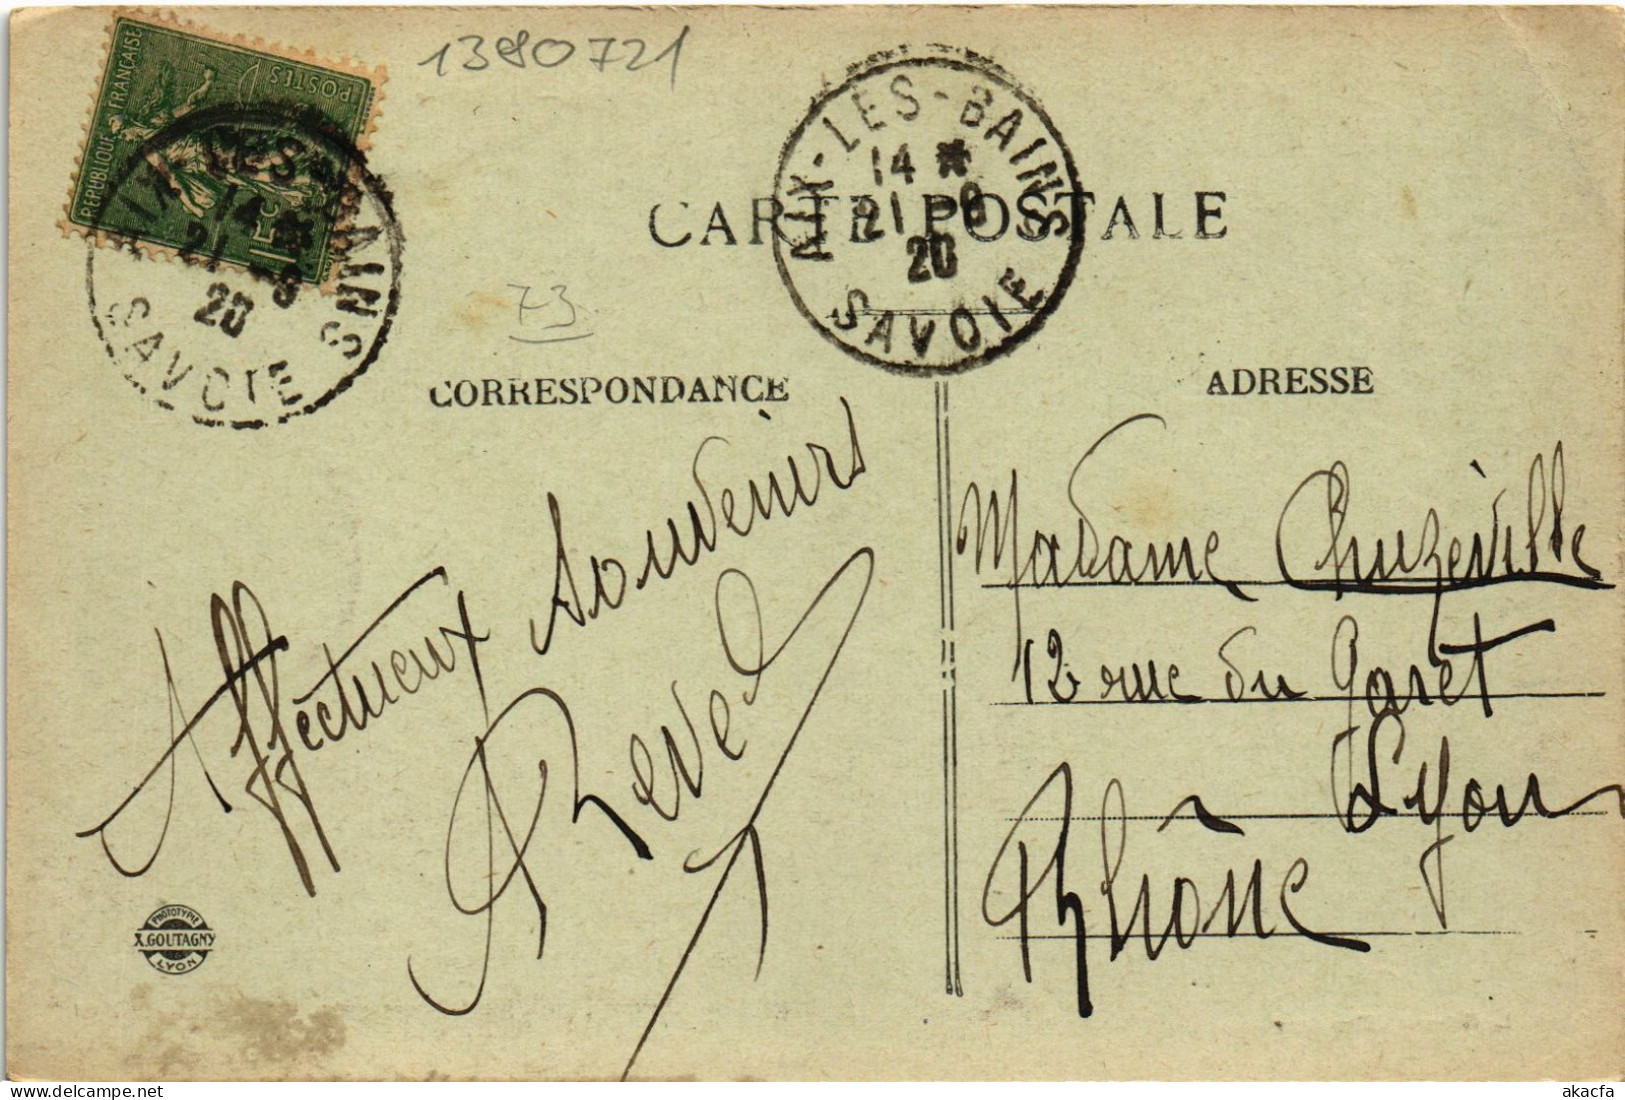 1390721
REPUBLIQUE FRANÇAISE
POSTES
15c
AIX-LES-BAINS
14 *
21 -9
20
SAVOIE
AIX-LES-BAINS
14 *
21 -9
20
SAVOIE
CARTE POSTALE
73
CORRESPONDANCE
ADRESSE
Affectueux souvenirs
Revel
Madame Chuzeville
12 rue du Garet
Lyon
Rhône
PHOTOTYPIE
X. GOUTAGNY
LYON
akacfa